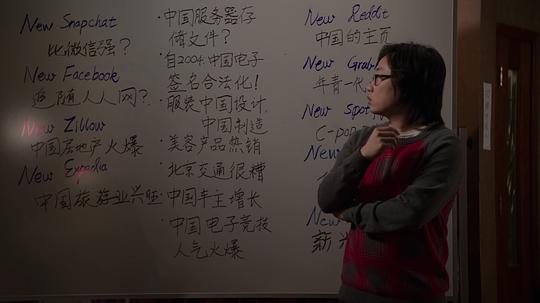 New Snapchat
比微信强？
New Facebook
追随人人网？
New Zillow
中国房地产火爆
New Expedia
中国旅游业兴旺
·中国服务器存
储文件？
·自2004, 中国电子
签名合法化！
·服装中国设计,
中国制造
·美容产品热销
·北京交通很糟
·中国车主增长
·中国电子竞技
人气火爆
New Reddit
中国的主页
New
年青一代
New
C-pop
New
New
新兴